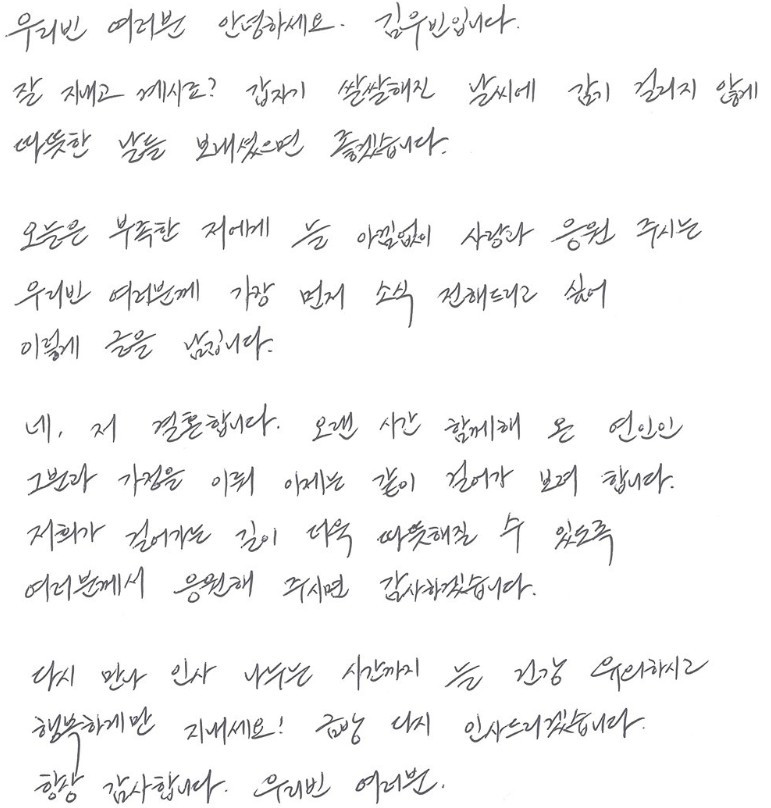 우리빈 여러분 안녕하세요. 김우빈입니다.
잘 지내고 계시죠? 갑자기 쌀쌀해진 날씨에 감기 걸리지 않게
따뜻한 날들 보내셨으면 좋겠습니다.
오늘은 부족한 저에게 늘 아낌없이 사랑과 응원 주시는
우리빈 여러분께 가장 먼저 소식 전해드리고 싶어
이렇게 글을 남깁니다.
네, 저 결혼합니다. 오랜 시간 함께해 온 연인인
그분과 가정을 이뤄 이제는 같이 걸어가 보려 합니다.
저희가 걸어가는 길이 더욱 따뜻해질 수 있도록
여러분께서 응원해 주시면 감사하겠습니다.
다시 만나 인사 나누는 시간까지 늘 건강 유의하시고
행복하게만 지내세요! 금방 다시 인사드리겠습니다.
항상 감사합니다. 우리빈 여러분.